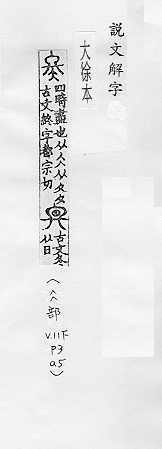 説文解字
大徐本
四時盡也从仌从夂夂
古文終字都宗切
古文冬
从日
(仌部
V.11下
P3
a5)